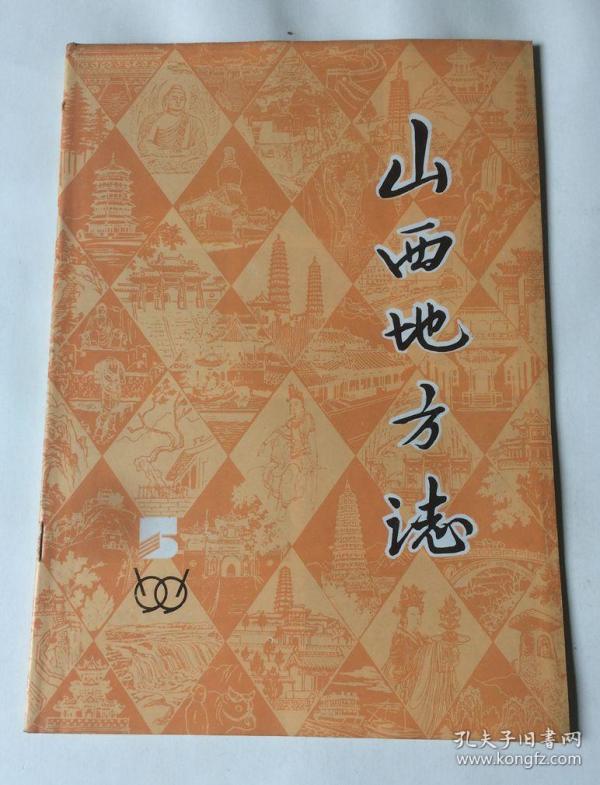 山西地方誌
5
孔夫子旧书网
www.kongfz.com